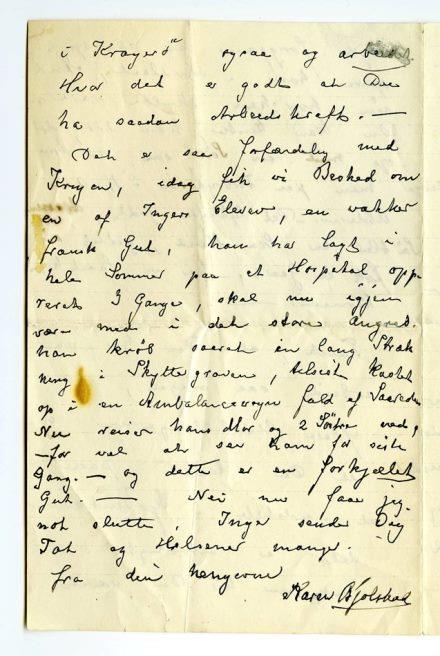 i Kragerø ogsaa og arbeide.
Hvor det er godt at Du
ha saadan Arbeidskraft. —
Det er saa forfærdelig med
Krigen, idag fik vi Besked om
en af Ingers Elever, en vakker
fransk Gut, han har lagt i
hele Sommer paa et Hospital opp-
reret 3 Gange, skal nu igjen
være med i det store Angreb.
han krøb saaret en lang Stræk
ning i Skyttegraven, tilsist kastet
op i en Ambulancevogn fuld af Saarede
Nu reiser hans Mor og 2 Søstre ned,
– for vel at se ham for siste
Gang. — og dette er en forkjælet
Gut. — Nei nu faar jeg
nok slutte, Inger sender Dig
Tak og Hilsener mange.
fra din hengivne
Karen